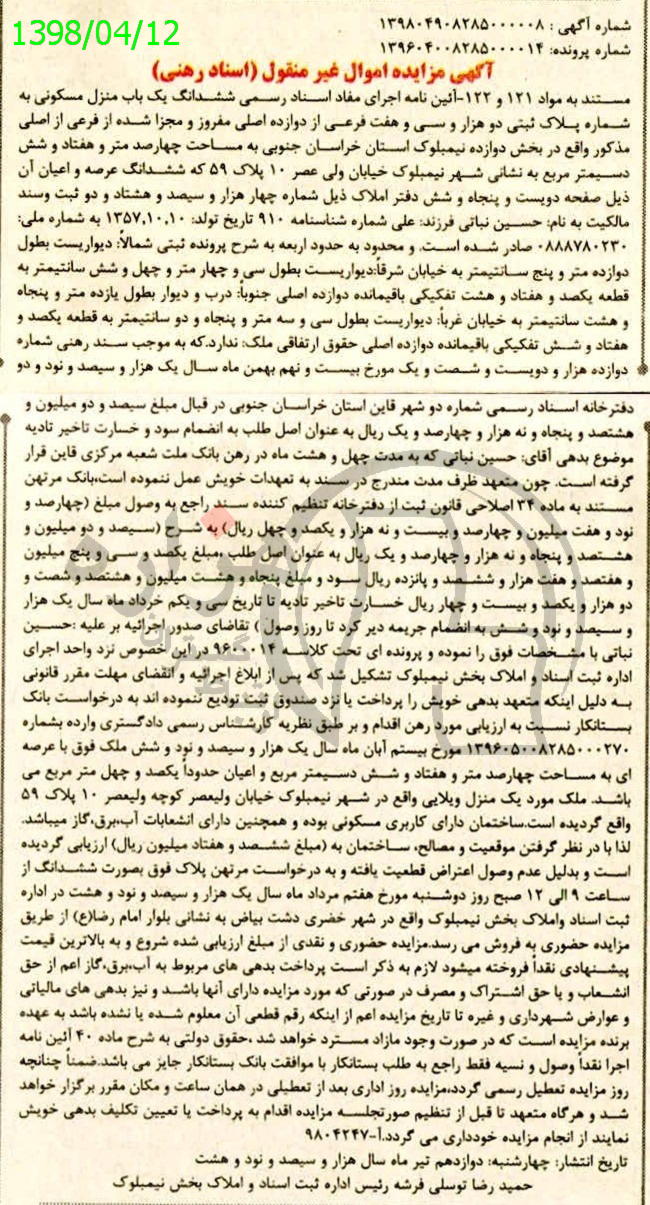 1398/04/12
شماره آگهی : ۱۳۹۸۰۴۹۰۸۲۸۵۰۰۰۰۰۸
شماره پرونده: ۱۳۹۶۰۴۰۰۸۲۸۵۰۰۰۰۱۴
آگهی مزایده اموال غیر منقول (اسناد رهنی)
مستند به مواد ۱۲۱ و ۱۲۲-آئین نامه اجرای مفاد اسناد رسمی ششدانگ یک باب منزل مسکونی به
شماره پلاک ثبتی دو هزار و سی و هفت فرعی از دوازده اصلی مفروز و مجزا شده از فرعی از اصلی
مذکور واقع در بخش دوازده نیمبلوک استان خراسان جنوبی به مساحت چهارصد متر و هفتاد و شش
دسیمتر مربع به نشانی شهر نیمبلوک خیابان ولی عصر ۱۰ پلاک ۵۹ که ششدانگ عرصه و اعیان آن
ذیل صفحه دویست و پنجاه و شش دفتر املاک ذیل شماره چهار هزار و سیصد و هشتاد و دو ثبت وسند
مالکیت به نام: حسین نباتی فرزند: علی شماره شناسنامه ۹۱۰ تاریخ تولد: ۱۳۵۷,۱۰,۱۰ به شماره ملی:
۰۸۸۸۷۸۰۲۳۰ صادر شده است. و محدود به حدود اربعه به شرح پرونده ثبتی شمالاً: دیواریست بطول
دوازده متر و پنج سانتیمتر به خیابان شرقاً:دیواریست بطول سی و چهار متر و چهل و شش سانتیمتر به
قطعه یکصد و هفتاد و هشت تفکیکی باقیمانده دوازده اصلی جنوباً: درب و دیوار بطول یازده متر و پنجاه
و هشت سانتیمتر به خیابان غرباً: دیواریست بطول سی و سه متر و پنجاه و دو سانتیمتر به قطعه یکصد و
هفتاد و شش تفکیکی باقیمانده دوازده اصلی حقوق ارتفاقی ملک: ندارد.که به موجب سند رهنی شماره
دوازده هزار و دویست و شصت و یک مورخ بیست و نهم بهمن ماه سال یک هزار و سیصد و نود و دو
دفترخانه اسناد رسمی شماره دو شهر قاین استان خراسان جنوبی در قبال مبلغ سیصد و دو میلیون و
هشتصد و پنجاه و نه هزار و چهارصد و یک ریال به عنوان اصل طلب به انضمام سود و خسارت تاخیر تادیه
موضوع بدهی آقای: حسین نباتی که به مدت چهل و هشت ماه در رهن بانک ملت شعبه مرکزی قاین قرار
گرفته است. چون متعهد ظرف مدت مندرج در سند به تعهدات خویش عمل ننموده است،بانک مرتهن
مستند به ماده ۳۴ اصلاحی قانون ثبت از دفترخانه تنظیم کننده سند راجع به وصول مبلغ (چهارصد و
نود و هفت میلیون و چهارصد و بیست و نه هزار و یکصد و چهل ریال) به شرح (سیصد و دو میلیون و
هشتصد و پنجاه و نه هزار و چهارصد و یک ریال به عنوان اصل طلب ،مبلغ یکصد و سی و پنج میلیون
و هفتصد و هفت هزار و ششصد و پانزده ریال سود و مبلغ پنجاه و هشت میلیون و هشتصد و شصت و
دو هزار و یکصد و بیست و چهار ریال خسارت تاخیر تادیه تا تاریخ سی و یکم خرداد ماه سال یک هزار
و سیصد و نود و شش به انضمام جریمه دیر کرد تا روز وصول ) تقاضای صدور اجرائیه بر علیه :حسین
نباتی با مشخصات فوق را نموده و پرونده ای تحت کلاسه ۹۶۰۰۰۱۴ در این خصوص نزد واحد اجرای
اداره ثبت اسناد و املاک بخش نیمبلوک تشکیل شد که پس از ابلاغ اجرائیه و انقضای مهلت مقرر قانونی
به دلیل اینکه متعهد بدهی خویش را پرداخت یا نزد صندوق ثبت تودیع ننموده اند به درخواست بانک
بستانکار نسبت به ارزیابی مورد رهن اقدام و بر طبق نظریه کارشناس رسمی دادگستری وارده بشماره
۱۳۹۶۰۵۰۰۸۲۸۵۰۰۰۲۷۰ مورخ بیستم آبان ماه سال یک هزار و سیصد و نود و شش ملک فوق با عرصه
ای به مساحت چهارصد متر و هفتاد و شش دسیمتر مربع و اعیان حدوداً یکصد و چهل متر مربع می
باشد. ملک مورد یک منزل ویلایی واقع در شهر نیمبلوک خیابان ولیعصر کوچه ولیعصر ۱۰ پلاک ۵۹
واقع گردیده است.ساختمان دارای کاربری مسکونی بوده و همچنین دارای انشعابات آب،برق،گاز میباشد.
لذا با در نظر گرفتن موقعیت و مصالح، ساختمان به (مبلغ ششصد و هفتاد میلیون ریال) ارزیابی گردیده
است و بدلیل عدم وصول اعتراض قطعیت یافته و به درخواست مرتهن پلاک فوق بصورت ششدانگ از
ساعت ۹ الی ۱۲ صبح روز دوشنبه مورخ هفتم مرداد ماه سال یک هزار و سیصد و نود و هشت در اداره
ثبت اسناد واملاک بخش نیمبلوک واقع در شهر خضری دشت بیاض به نشانی بلوار امام رضا(ع) از طریق
مزایده حضوری به فروش می رسد.مزایده حضوری و نقدی از مبلغ ارزیابی شده شروع و به بالاترین قیمت
پیشنهادی نقداً فروخته میشود لازم به ذکر است پرداخت بدهی های مربوط به آب،برق،گاز اعم از حق
انشعاب و یا حق اشتراک و مصرف در صورتی که مورد مزایده دارای آنها باشد و نیز بدهی های مالیاتی
و عوارض شهرداری و غیره تا تاریخ مزایده اعم از اینکه رقم قطعی آن معلوم شده یا نشده باشد به عهده
برنده مزایده است که در صورت وجود مازاد مسترد خواهد شد ،حقوق دولتی به شرح ماده ۴۰ آئین نامه
اجرا نقداً وصول و نسیه فقط راجع به طلب بستانکار با موافقت بانک بستانکار جایز می باشد.ضمناً چنانچه
روز مزایده تعطیل رسمی گردد،مزایده روز اداری بعد از تعطیلی در همان ساعت و مکان مقرر برگزار خواهد
شد و هرگاه متعهد تا قبل از تنظیم صورتجلسه مزایده اقدام به پرداخت یا تعیین تکلیف بدهی خویش
نمایند از انجام مزایده خودداری می گردد.آ-۹۸۰۴۲۴۷
تاریخ انتشار: چهارشنبه: دوازدهم تیر ماه سال هزار و سیصد و نود و هشت
حمید رضا توسلی فرشه رئیس اداره ثبت اسناد و املاک بخش نیمبلوک